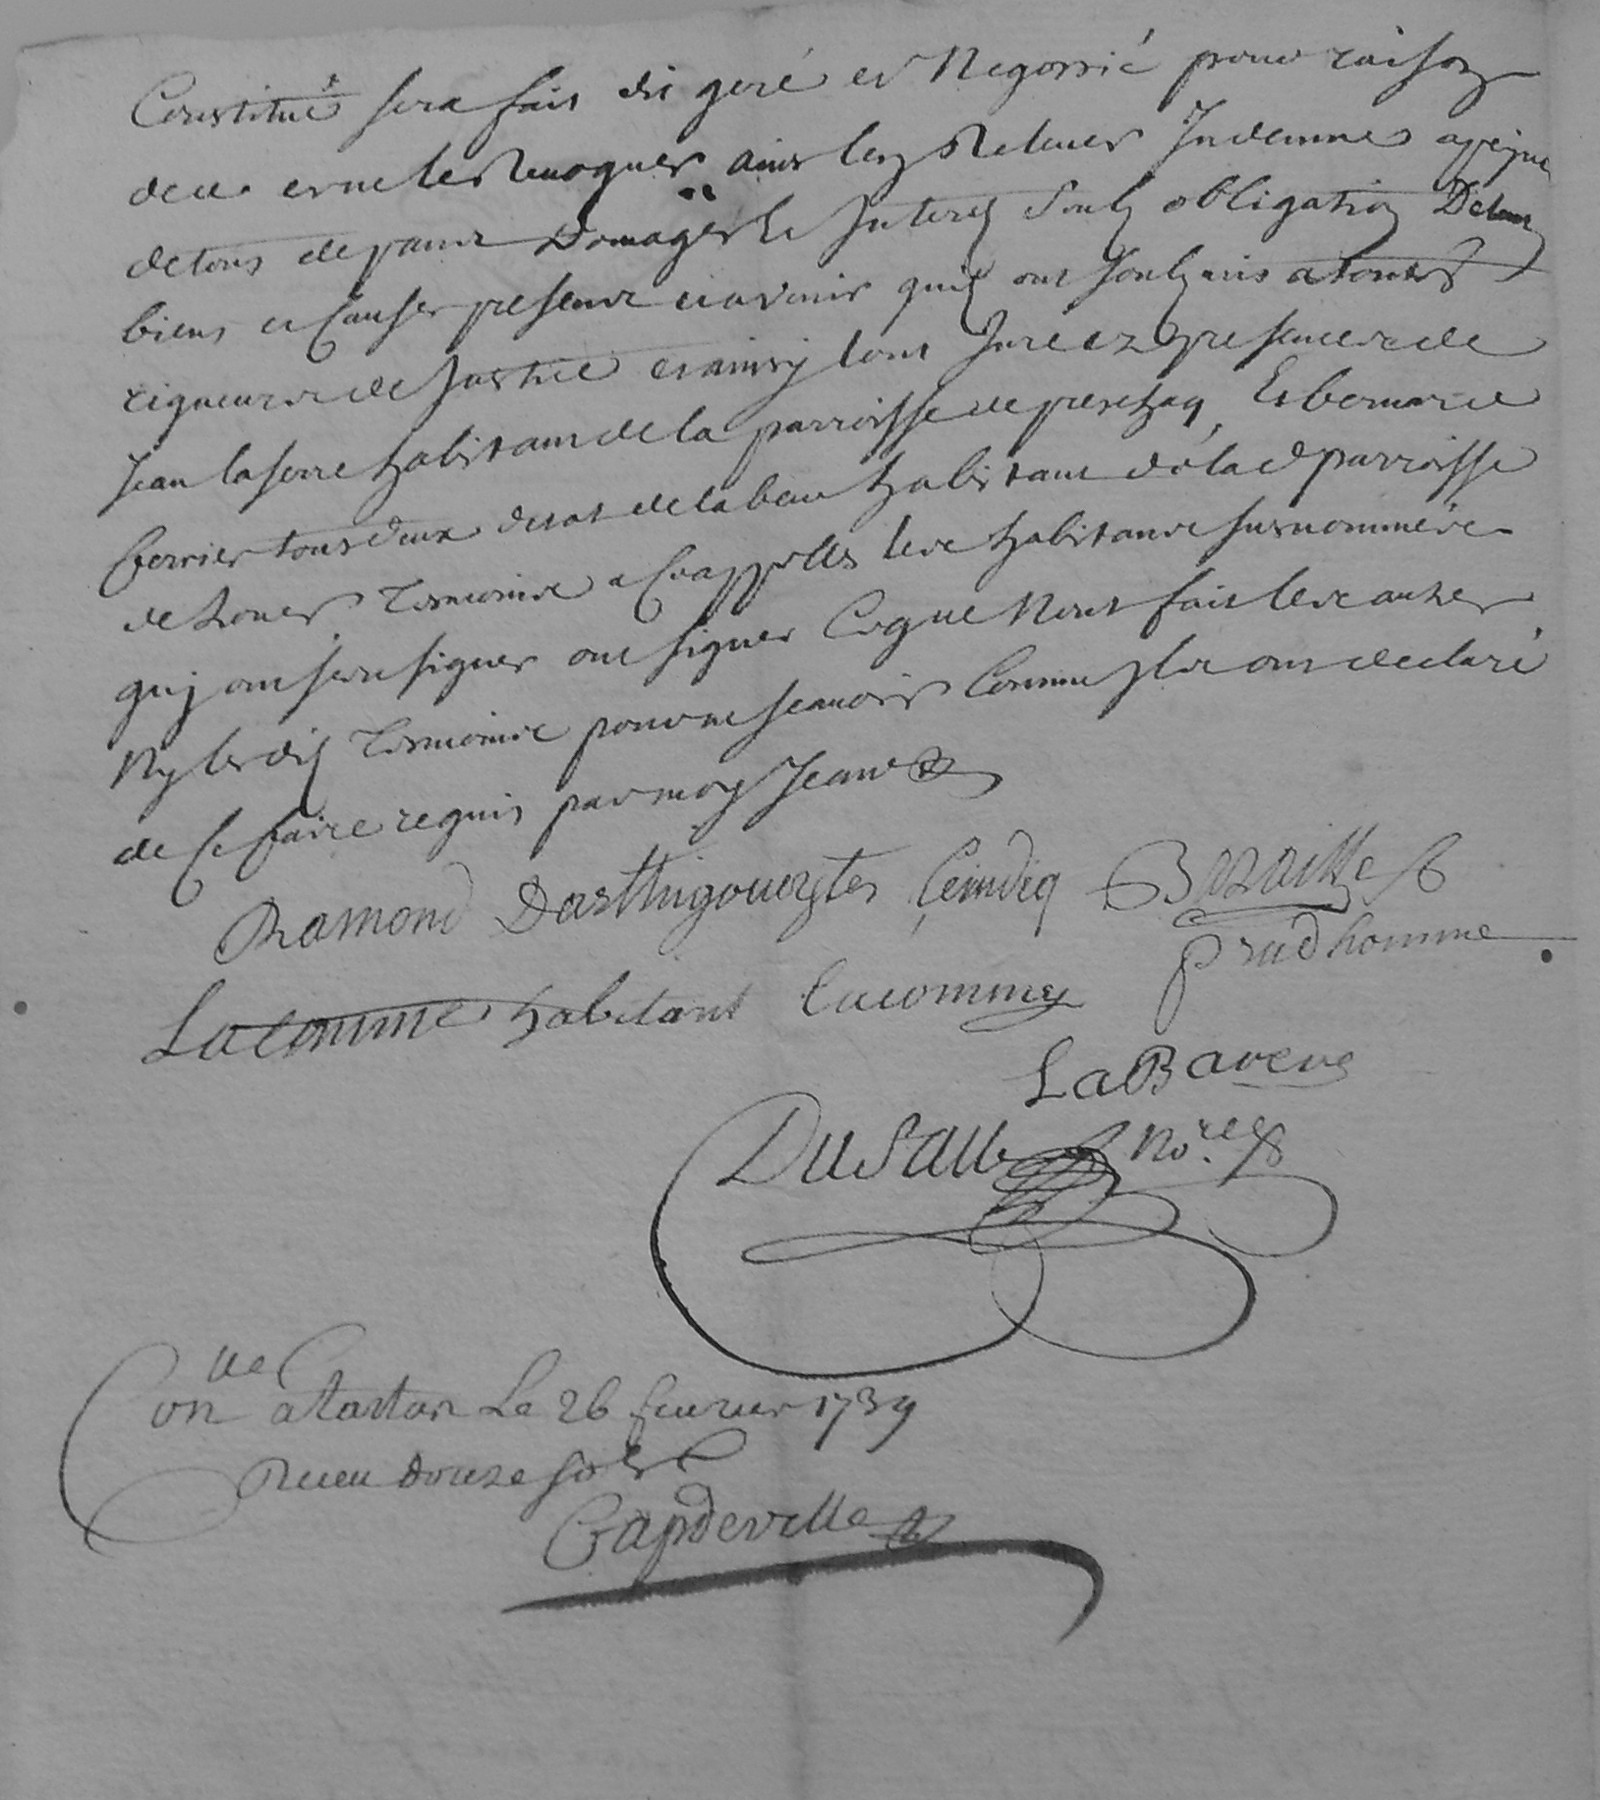 Constitué sera fait dit geré et Negossié pour raison
de ce et ne les Revoquer ains les Relever Indemnes a peyne
de tous depans Domages et Interes Soubs obligation De leurs
biens et Causes presens et avenir quils ont Soubsmis a toutes
rigueurs de Justice et ainsy l'ont Juré ez presences de
Jean laserre habitant de la parroisse de prechaq, Et bernard
ferrier tous deux habitant de lad parroisse
de Temoins a Ce appellés les habitans susnommés
quy ont sceu signer ont signer Ce que Nont fait les autres
Ny lesdits Temoins pour ne scavoir Comme ils ont declaré
de Ce faire requis par moy
Ramond Darthigoueytes Ceindiq Baraille
prudhomme
Lacomme habitant Lacomme
LaBarere
DuSault Nore
Conlle a tartas Le 26 feuvrier 1739
Receu douze sols
Capdeville